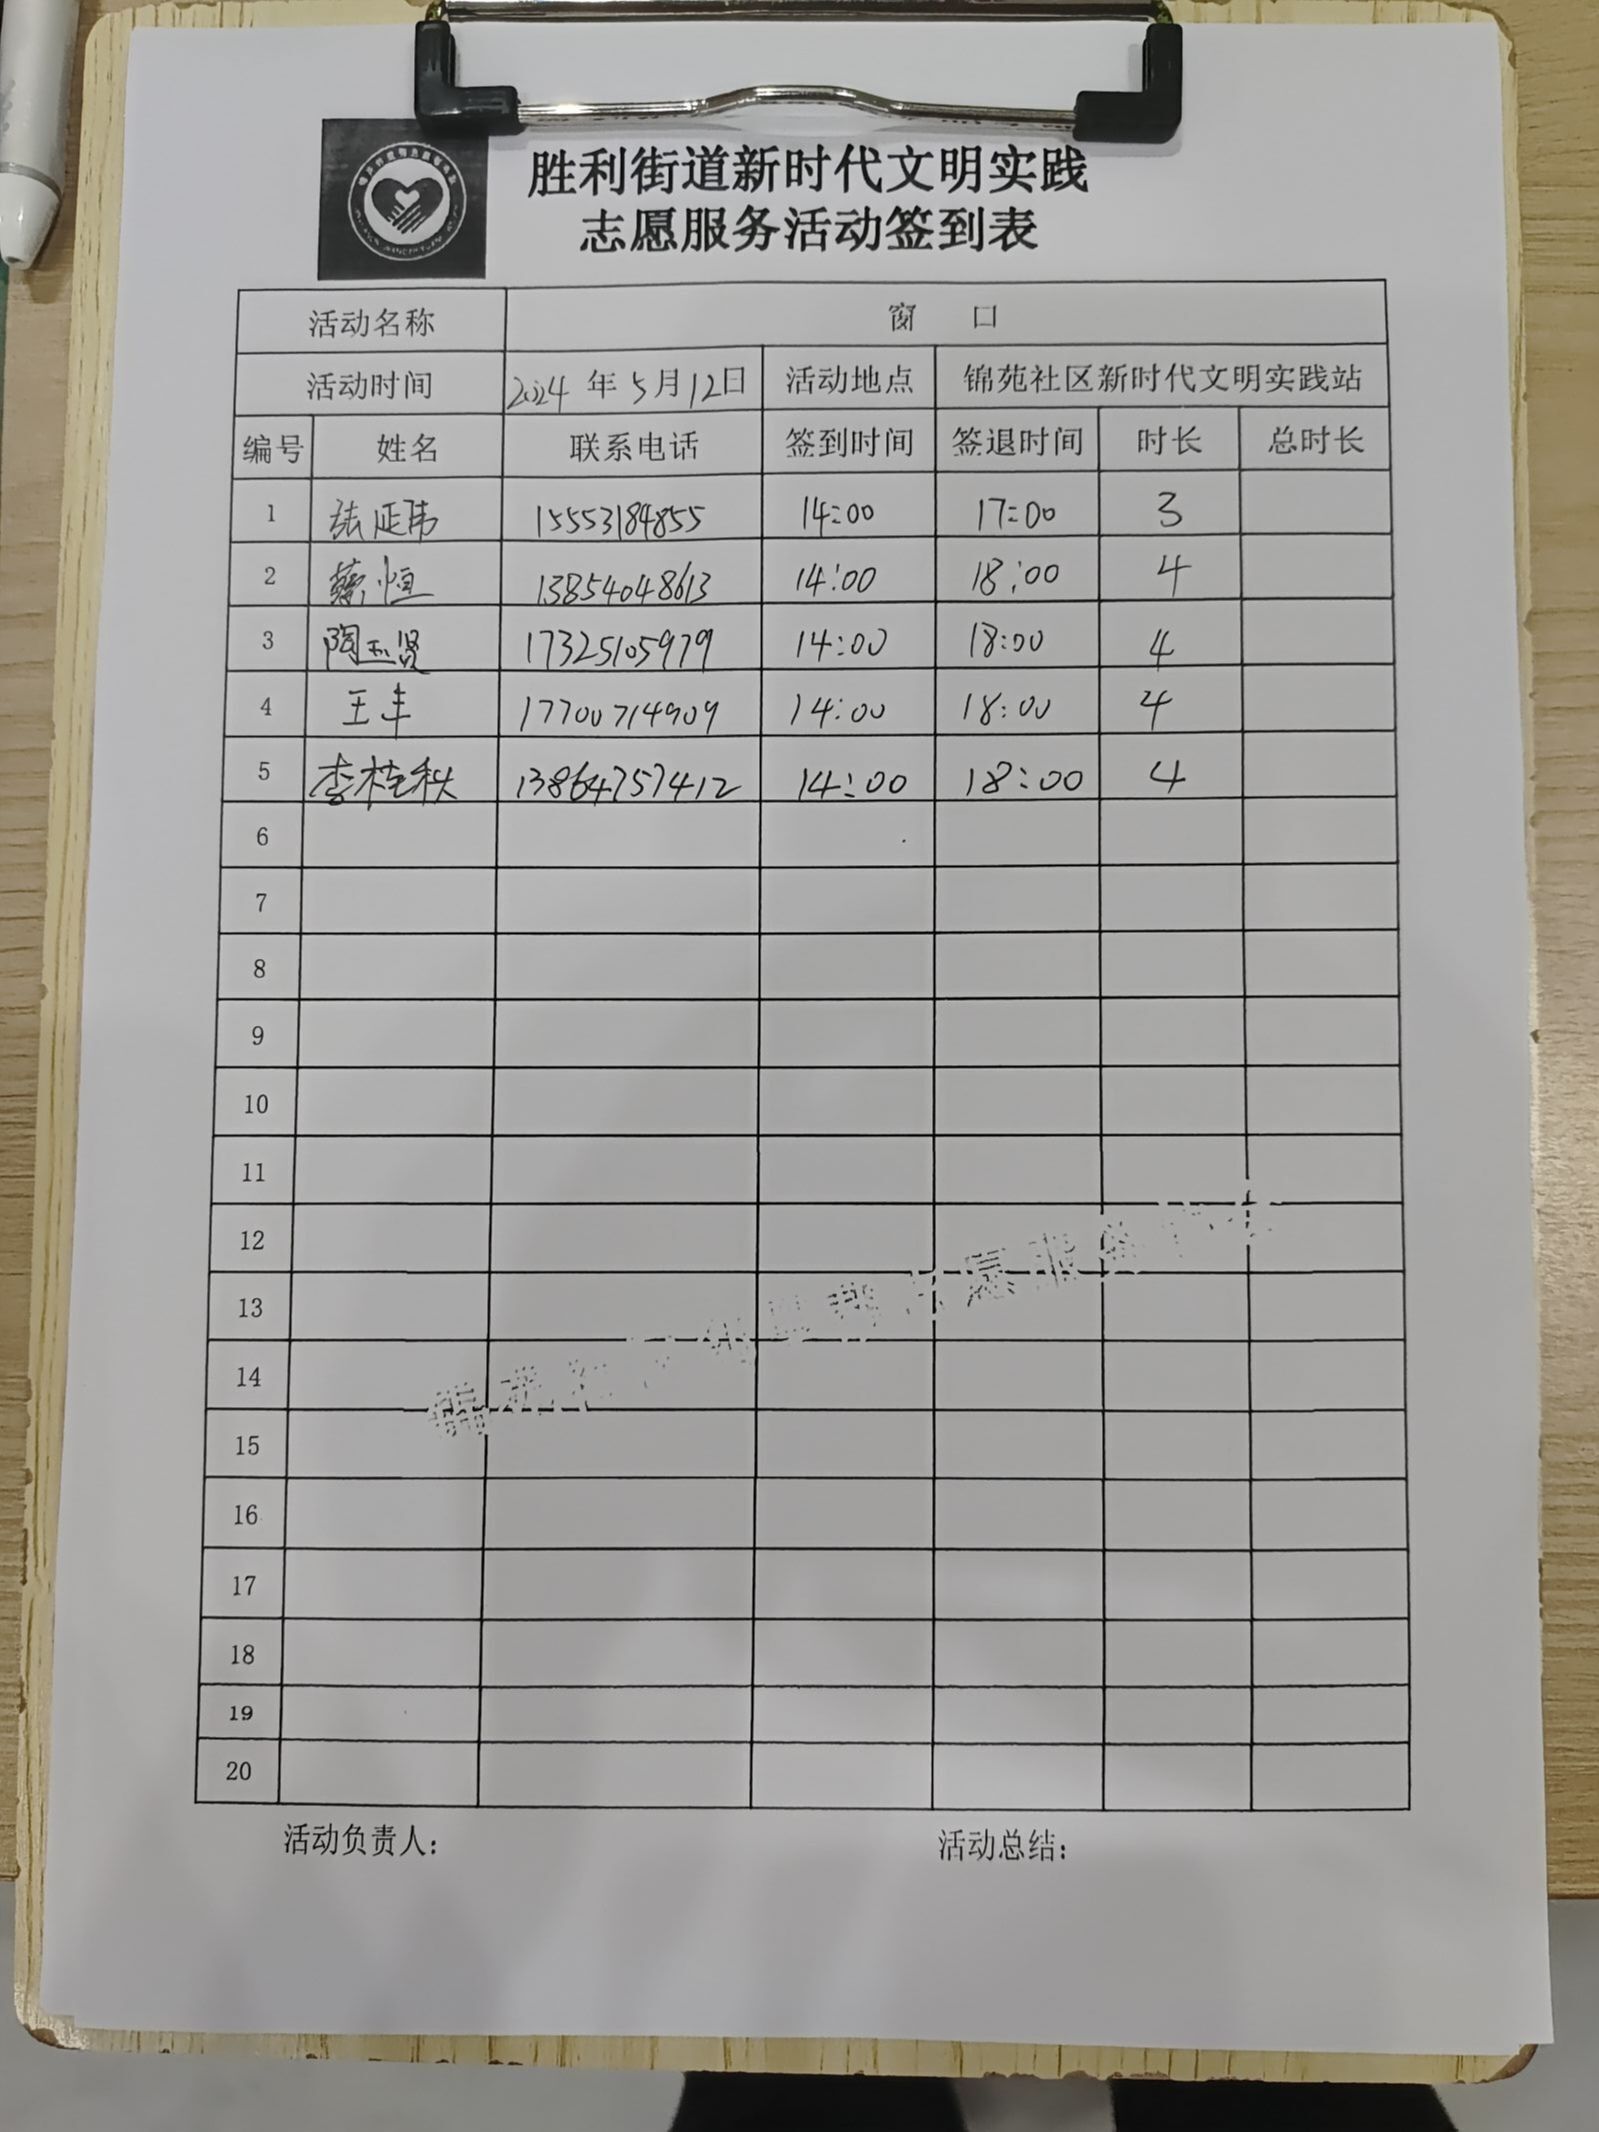 胜利街道新时代文明实践
志愿服务活动签到表
活动名称 窗 口
活动时间 2024 年 5 月 12 日 活动地点 锦苑社区新时代文明实践站
编号 姓名 联系电话 签到时间 签退时间 时长 总时长
1 张延伟 15553184855 14:00 17:00 3
2 蔡恒 13854048613 14:00 18:00 4
3 陶玉贤 17325105979 14:00 18:00 4
4 王丰 17700714909 14:00 18:00 4
5 李桂秋 13864757412 14:00 18:00 4
6
7
8
9
10
11
12
13
14
15
16
17
18
19
20
活动负责人: 活动总结: